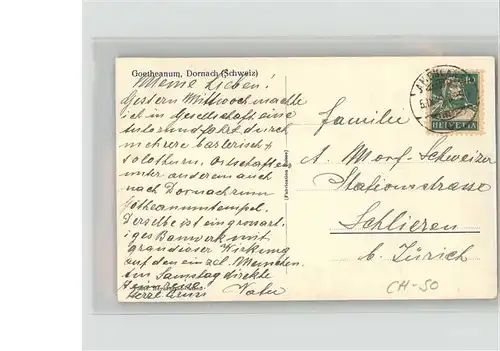 Goetheanum, Dornach (Schweiz)
Meine Lieben!
Gestern Mittwoch machte
ich in Gesellschaft eine
Autorundfahrt durch
mehrere baslerisch &
solothurn. Ortschaften
unter anderem auch
nach Dornach zum
Götheanumtempel.
Derselbe ist ein grossart
iges Bauwerk mit
grandioser Wirkung
auf den einzel. Menschen
Am Samstag direkte
Heimreise
Herzl. Gruss
Vater
(Fabrication Suisse)
10
HELVETIA
Familie
A. Morf-Schweizer
Stationsstrasse
Schlieren
b. Zürich
CH-50